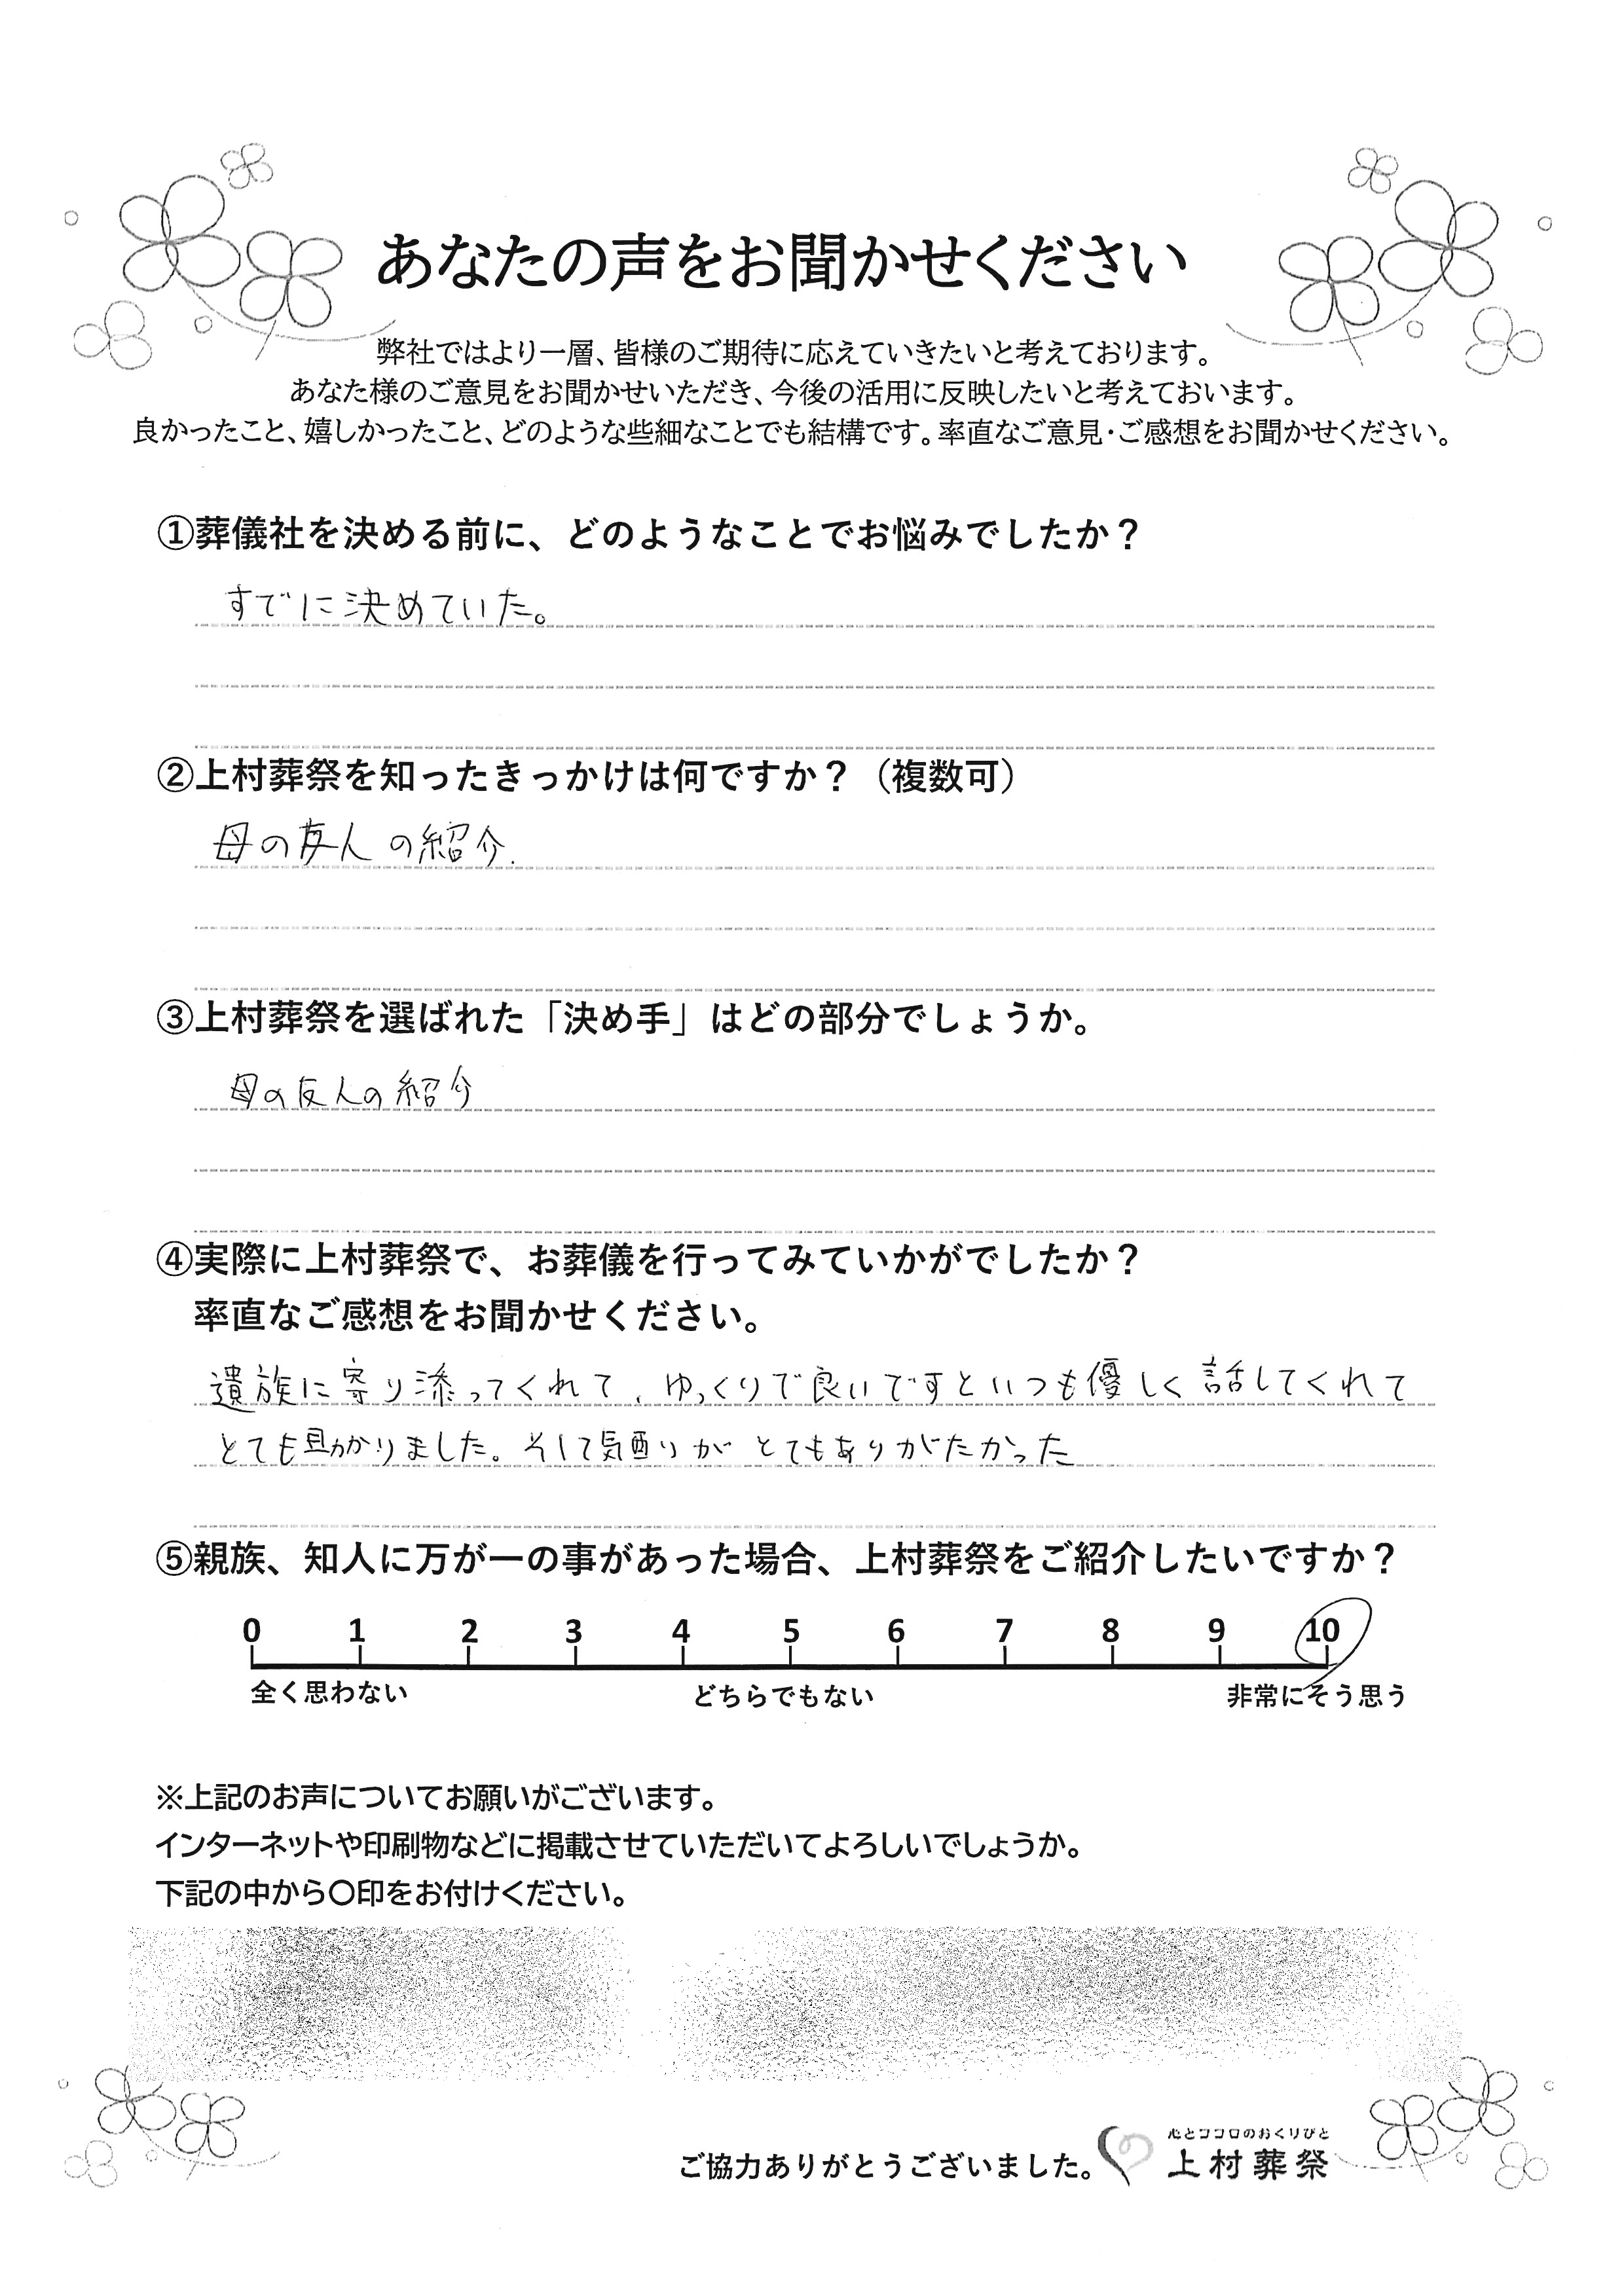 あなたの声をお聞かせください
弊社ではより一層、皆様のご期待に応えていきたいと考えております。
あなた様のご意見をお聞かせいただき、今後の活用に反映したいと考えておいます。
良かったこと、嬉しかったこと、どのような些細なことでも結構です。率直なご意見・ご感想をお聞かせください。
①葬儀社を決める前に、どのようなことでお悩みでしたか？
すでに決めていた。
②上村葬祭を知ったきっかけは何ですか？（複数可）
母の友人の紹介.
③上村葬祭を選ばれた「決め手」はどの部分でしょうか。
母の友人の紹介
④実際に上村葬祭で、お葬儀を行ってみていかがでしたか？
率直なご感想をお聞かせください。
遺族に寄り添ってくれて、ゆっくりで良いですといつも優しく話してくれて
とても助かりました。そして気配りがとてもありがたかった
⑤親族、知人に万が一の事があった場合、上村葬祭をご紹介したいですか？
0 1 2 3 4 5 6 7 8 9 10
全く思わない どちらでもない 非常にそう思う
※上記のお声についてお願いがございます。
インターネットや印刷物などに掲載させていただいてよろしいでしょうか。
下記の中から〇印をお付けください。
心とココロのおくりびと
ご協力ありがとうございました。上村葬祭